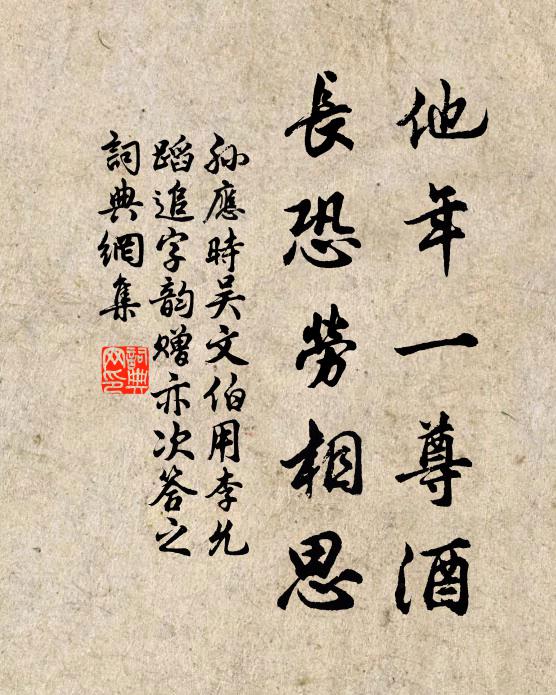 他年一尊酒
長恐勞相思
孙應時吴文伯用李允
蹈追字韵赠亦次答之
詞典網集
詞典
网印